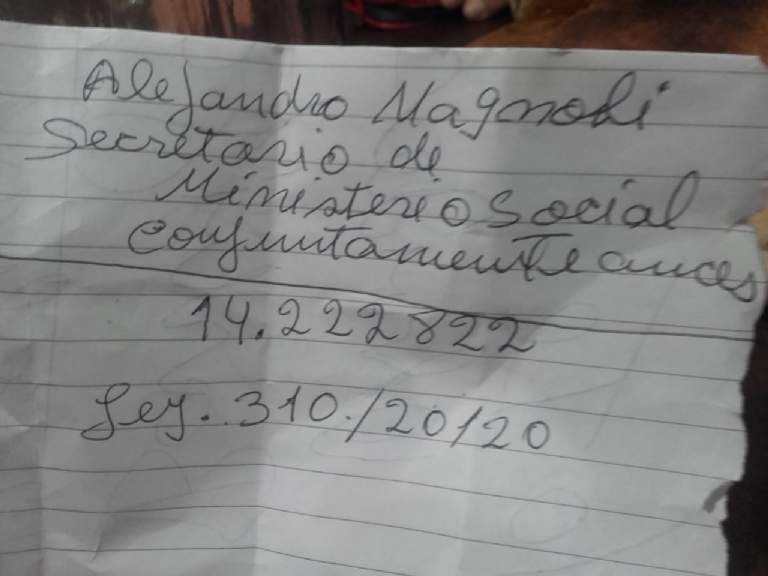 Alejandro Magnoli
Secretario de
Ministerio Social
conjuntamente ances
14.222822
Ley. 310./20/20